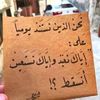 نحن الذين نستند يومياً
على :
إياك نعبد وإياك نستعين
أنسقط ؟!